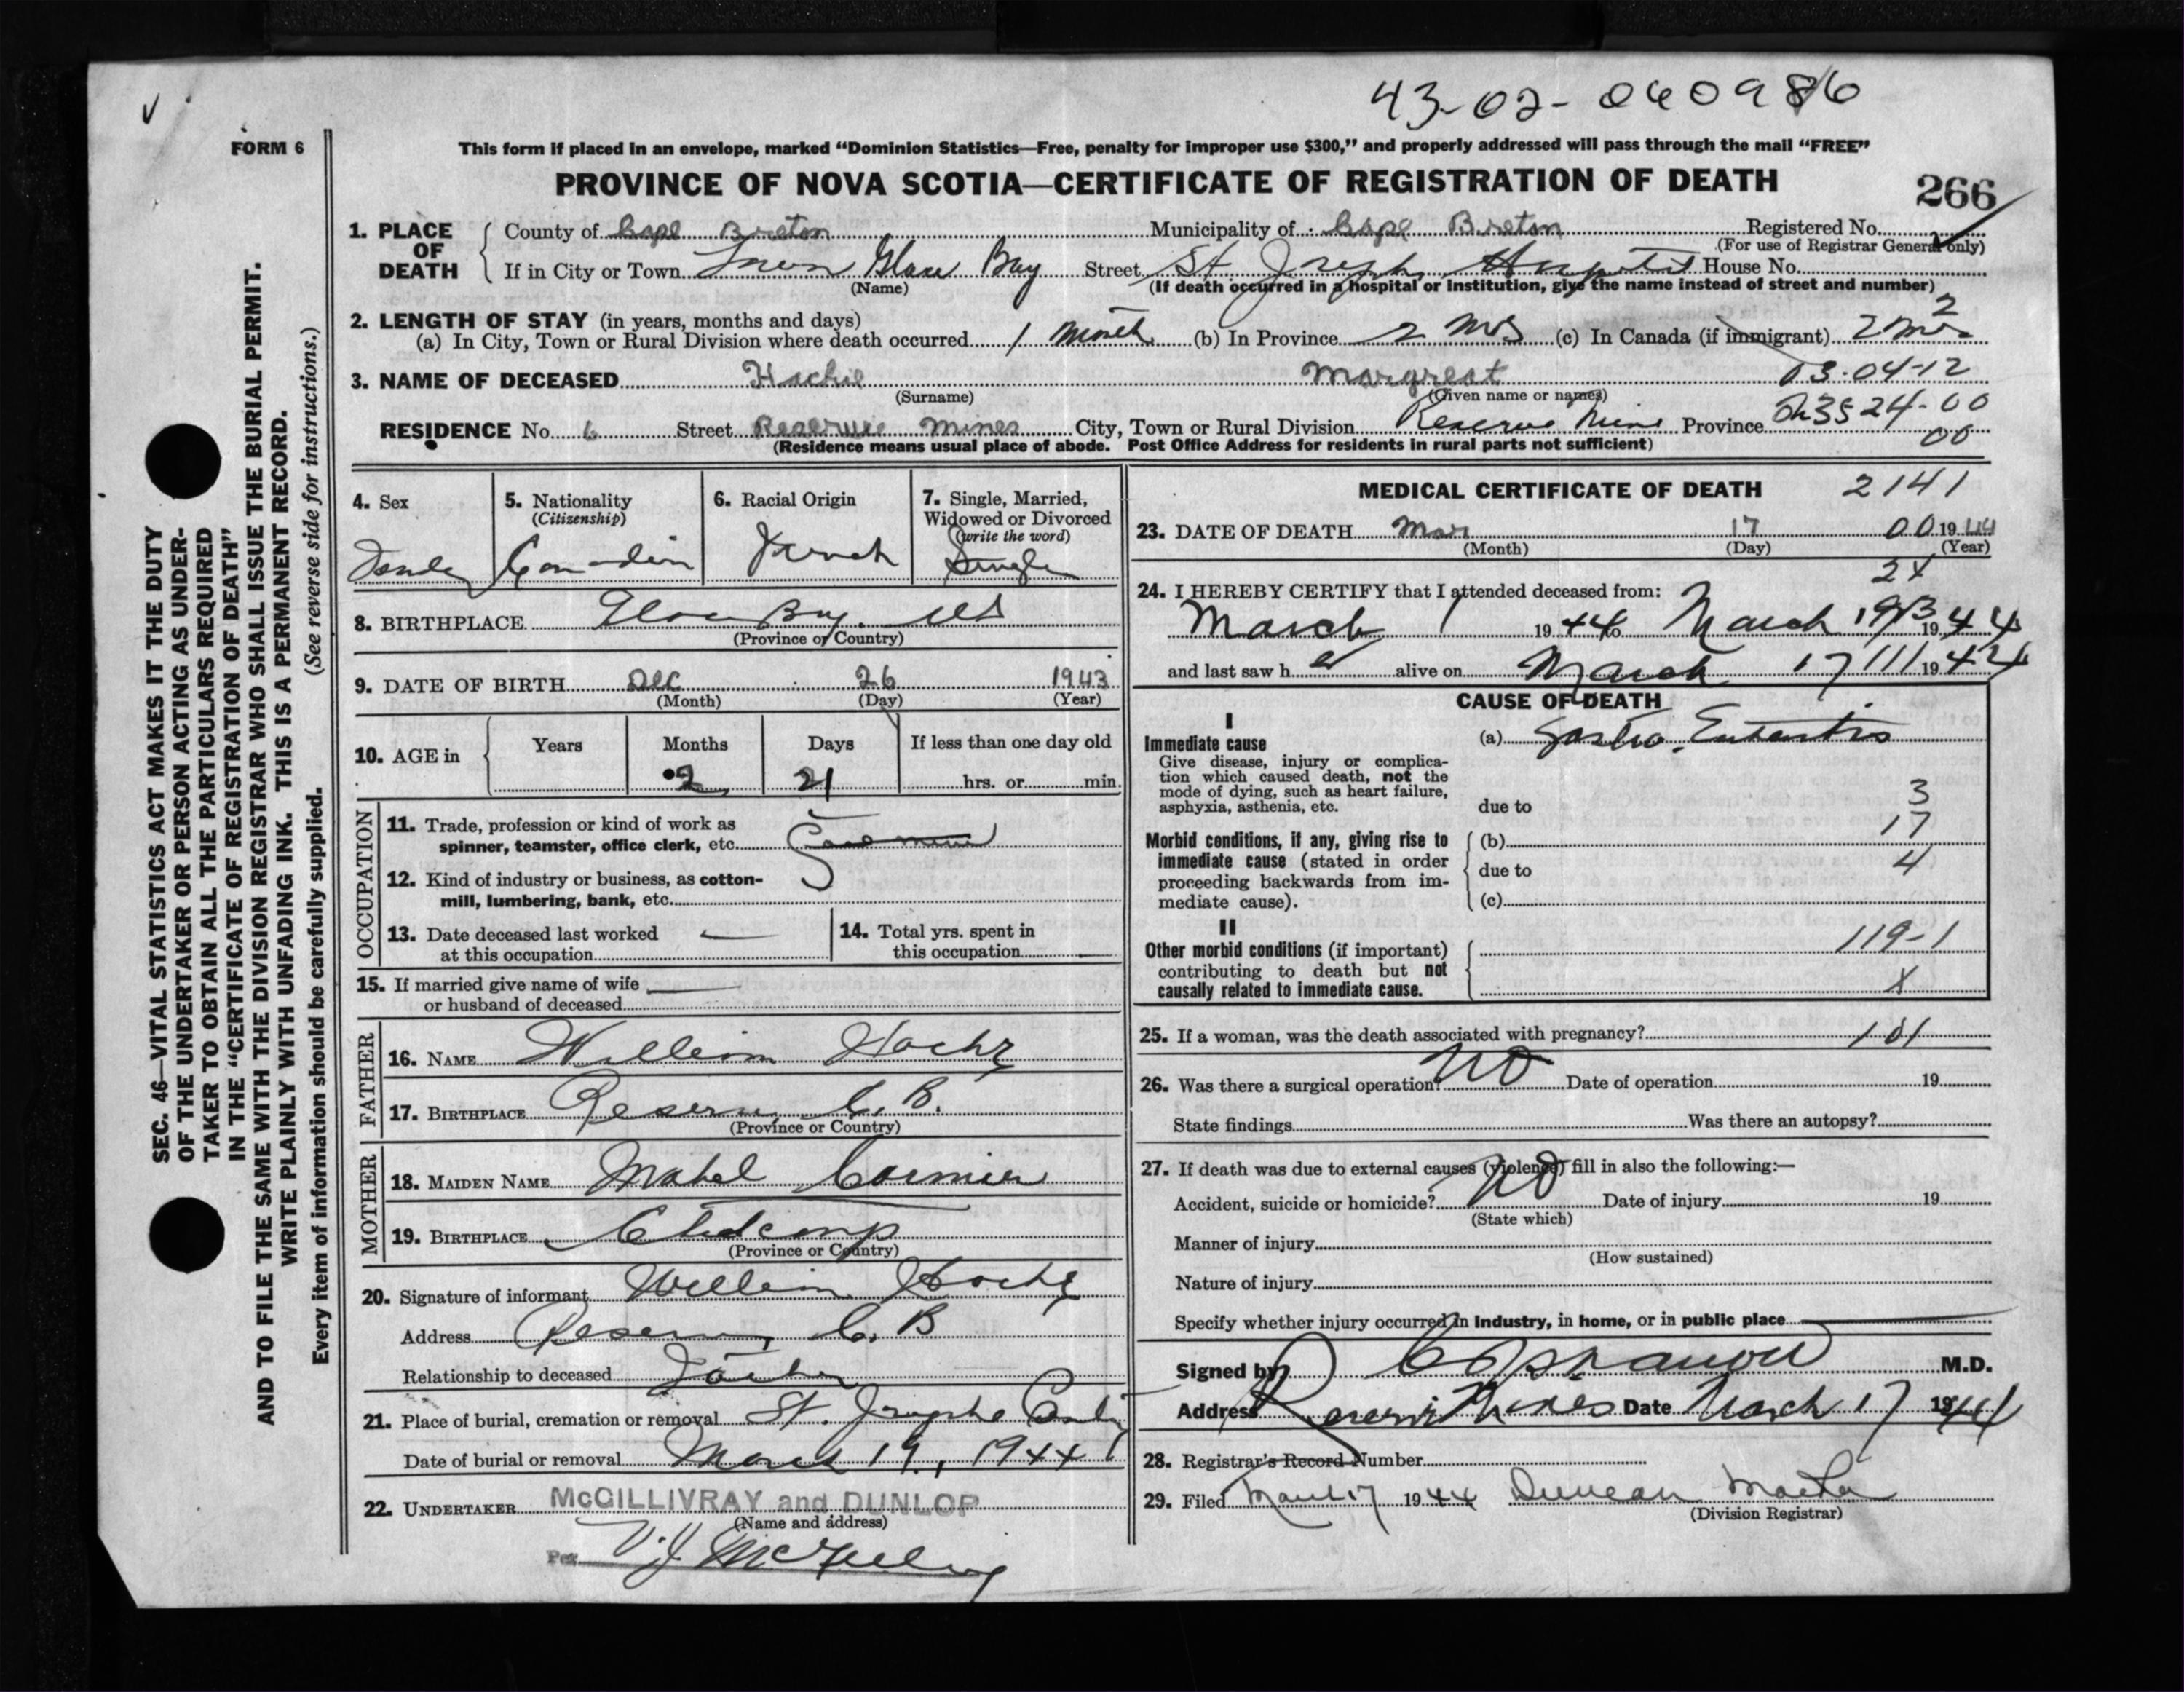 43-02-060986
FORM 6
This form if placed in an envelope, marked “Dominion Statistics—Free, penalty for improper use $300,” and properly addressed will pass through the mail “FREE”
PROVINCE OF NOVA SCOTIA—CERTIFICATE OF REGISTRATION OF DEATH
266
1. PLACE OF DEATH
County of Cape Breton Municipality of Cape Breton Registered No.
(For use of Registrar General only)
If in City or Town Town Glace Bay Street St Joseph Hospital House No.
(Name) (If death occurred in a hospital or institution, give the name instead of street and number)
2. LENGTH OF STAY (in years, months and days)
2
(a) In City, Town or Rural Division where death occurred 1 Month (b) In Province 2 Mos (c) In Canada (if immigrant) 2 Mos
3. NAME OF DECEASED Hachie Margreat 03-04-12
(Surname) (Given name or names)
RESIDENCE No. 6 Street Reserve Mines City, Town or Rural Division Reserve Mine Province 3524-00
00
(Residence means usual place of abode. Post Office Address for residents in rural parts not sufficient)
4. Sex 5. Nationality 6. Racial Origin 7. Single, Married,
(Citizenship) Widowed or Divorced
(write the word)
Female Canadian French Single
8. BIRTHPLACE Glace Bay. NS
(Province or Country)
9. DATE OF BIRTH Dec 26 1943
(Month) (Day) (Year)
10. AGE in Years Months Days If less than one day old
2 21 hrs. or min.
OCCUPATION
11. Trade, profession or kind of work as
spinner, teamster, office clerk, etc.
12. Kind of industry or business, as cotton-
mill, lumbering, bank, etc.
13. Date deceased last worked 14. Total yrs. spent in
at this occupation this occupation
15. If married give name of wife
or husband of deceased
FATHER
16. NAME William Hache
17. BIRTHPLACE Reserve C. B.
(Province or Country)
MOTHER
18. MAIDEN NAME Mabel Cormier
19. BIRTHPLACE Chetcamp
(Province or Country)
20. Signature of informant William Hache
Address Reserve, C. B
Relationship to deceased Father
21. Place of burial, cremation or removal St. Josephs
Date of burial or removal March 19, 1944
22. UNDERTAKER McGILLIVRAY and DUNLOP
(Name and address)
Per
MEDICAL CERTIFICATE OF DEATH 2141
23. DATE OF DEATH Mar 17 00 1944
(Month) (Day) (Year)
24. I HEREBY CERTIFY that I attended deceased from:
2X
March 1 1944 to March 1944
and last saw her alive on March 17 1944
CAUSE OF DEATH
I
Immediate cause (a) Gastro Enteritis
Give disease, injury or complica-
tion which caused death, not the
mode of dying, such as heart failure,
asphyxia, asthenia, etc. due to
3
17
4
Morbid conditions, if any, giving rise to (b)
immediate cause (stated in order due to
proceeding backwards from im-
mediate cause). (c)
II
Other morbid conditions (if important) 119-1
contributing to death but not
causally related to immediate cause. X
25. If a woman, was the death associated with pregnancy? 101
26. Was there a surgical operation? NO Date of operation 19
State findings Was there an autopsy?
27. If death was due to external causes (violence) fill in also the following:—
Accident, suicide or homicide? NO Date of injury 19
(State which)
Manner of injury
(How sustained)
Nature of injury
Specify whether injury occurred in industry, in home, or in public place
Signed by M.D.
Address Reserve Mines Date March 17 1944
28. Registrar's Record Number
29. Filed March 17 1944 Duncan
(Division Registrar)
SEC. 46—VITAL STATISTICS ACT MAKES IT THE DUTY
OF THE UNDERTAKER OR PERSON ACTING AS UNDER-
TAKER TO OBTAIN ALL THE PARTICULARS REQUIRED
IN THE “CERTIFICATE OF REGISTRATION OF DEATH”
AND TO FILE THE SAME WITH THE DIVISION REGISTRAR WHO SHALL ISSUE THE BURIAL PERMIT.
WRITE PLAINLY WITH UNFADING INK. THIS IS A PERMANENT RECORD.
Every item of information should be carefully supplied. (See reverse side for instructions.)